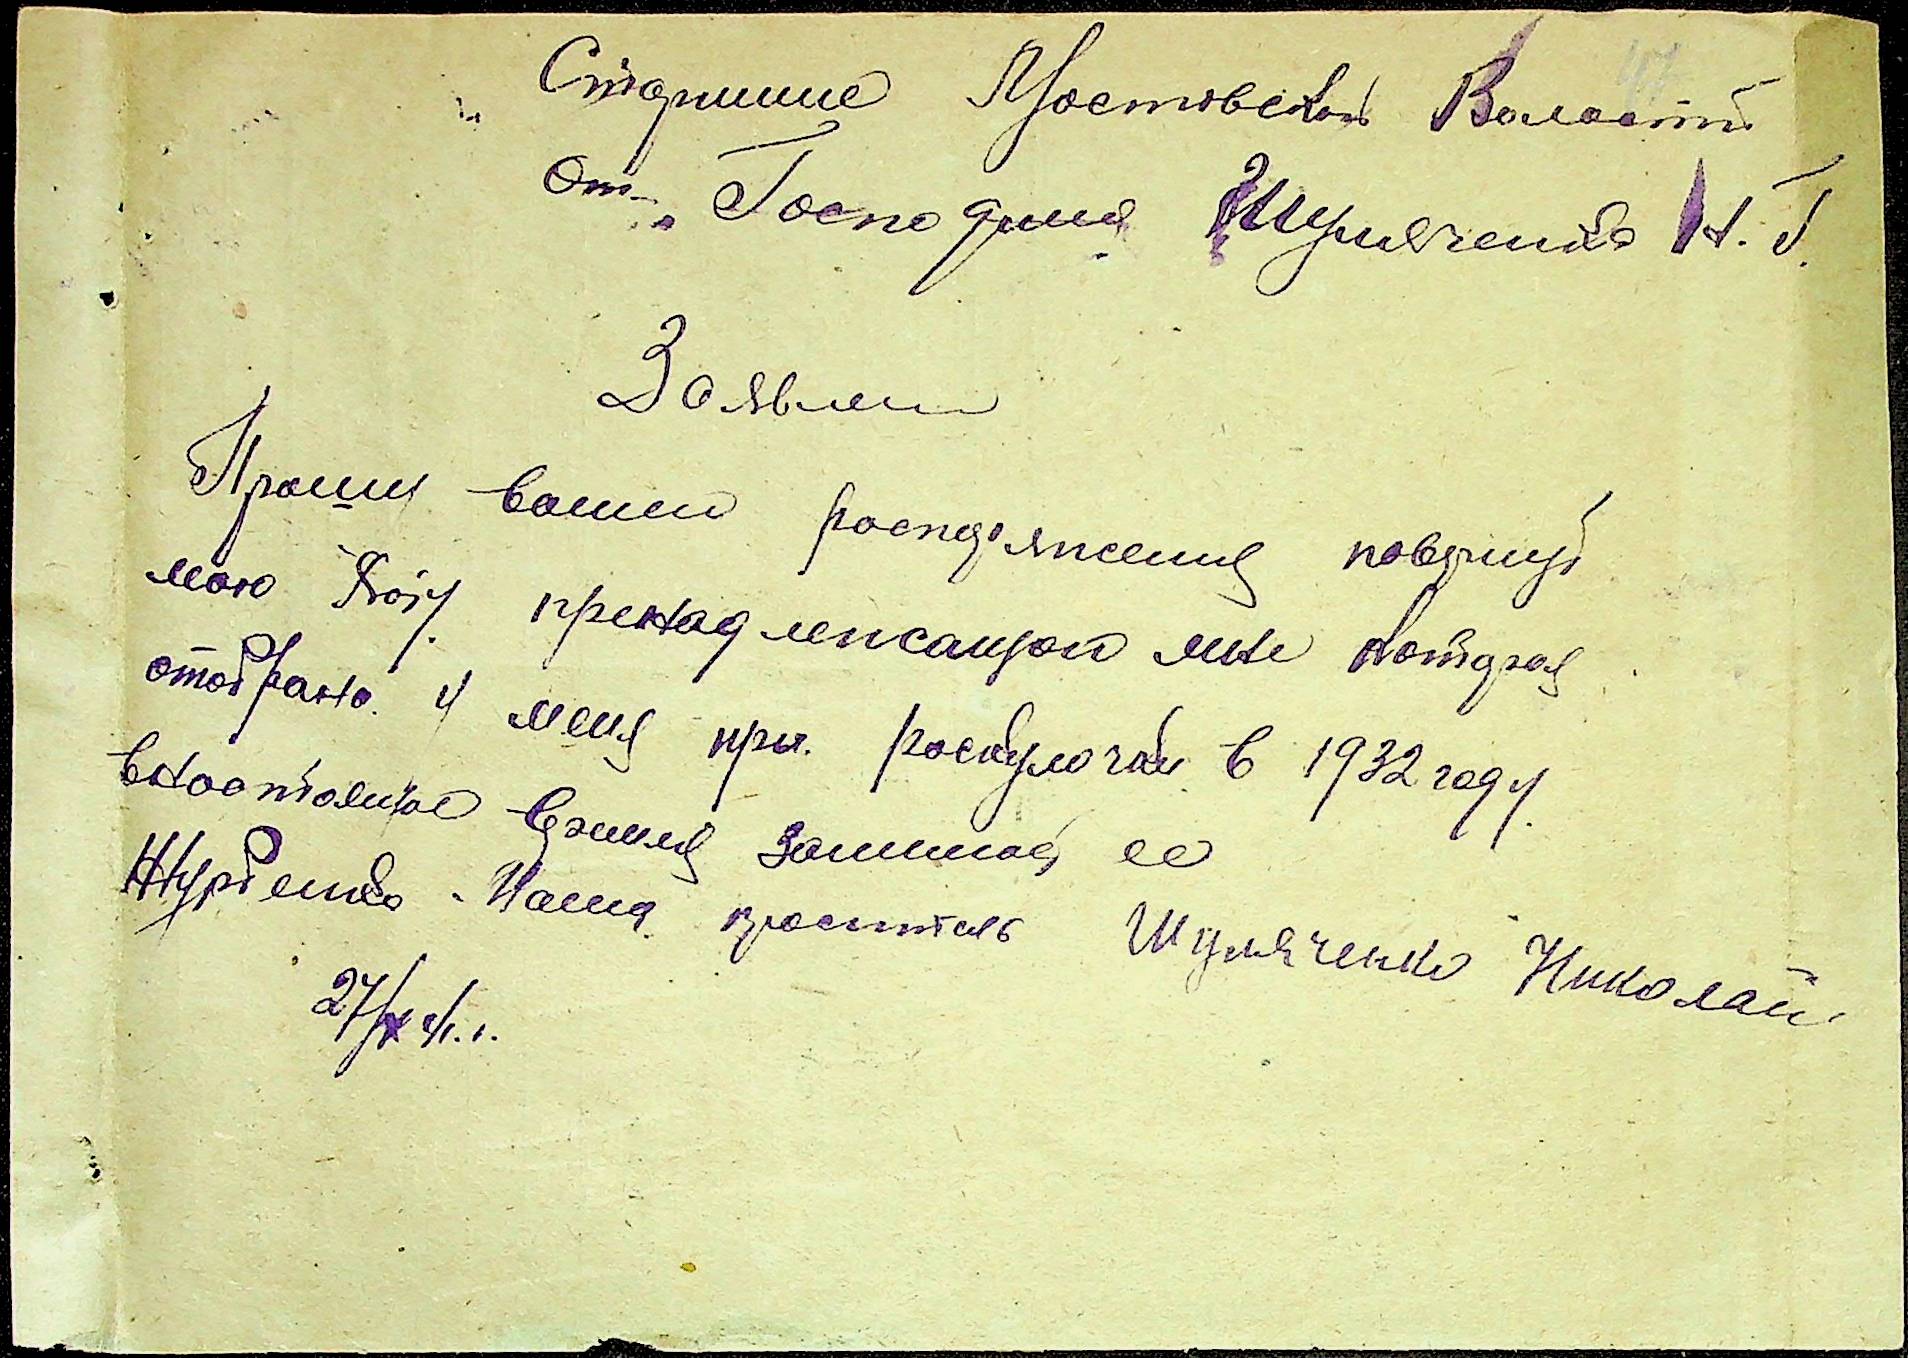 Старшине Мостовской Воласти
от Господина Шуляченко Н. Г.
Заявлен
Прошу вашего роспоряжения повернуть
мою хату пренадлежащою мне которая
отобрано у меня при. роскулачки в 1932 году.
внастоящее время занимает ее
Журбенко Наша проситель Шуляченко Николай
27/X 41.г.